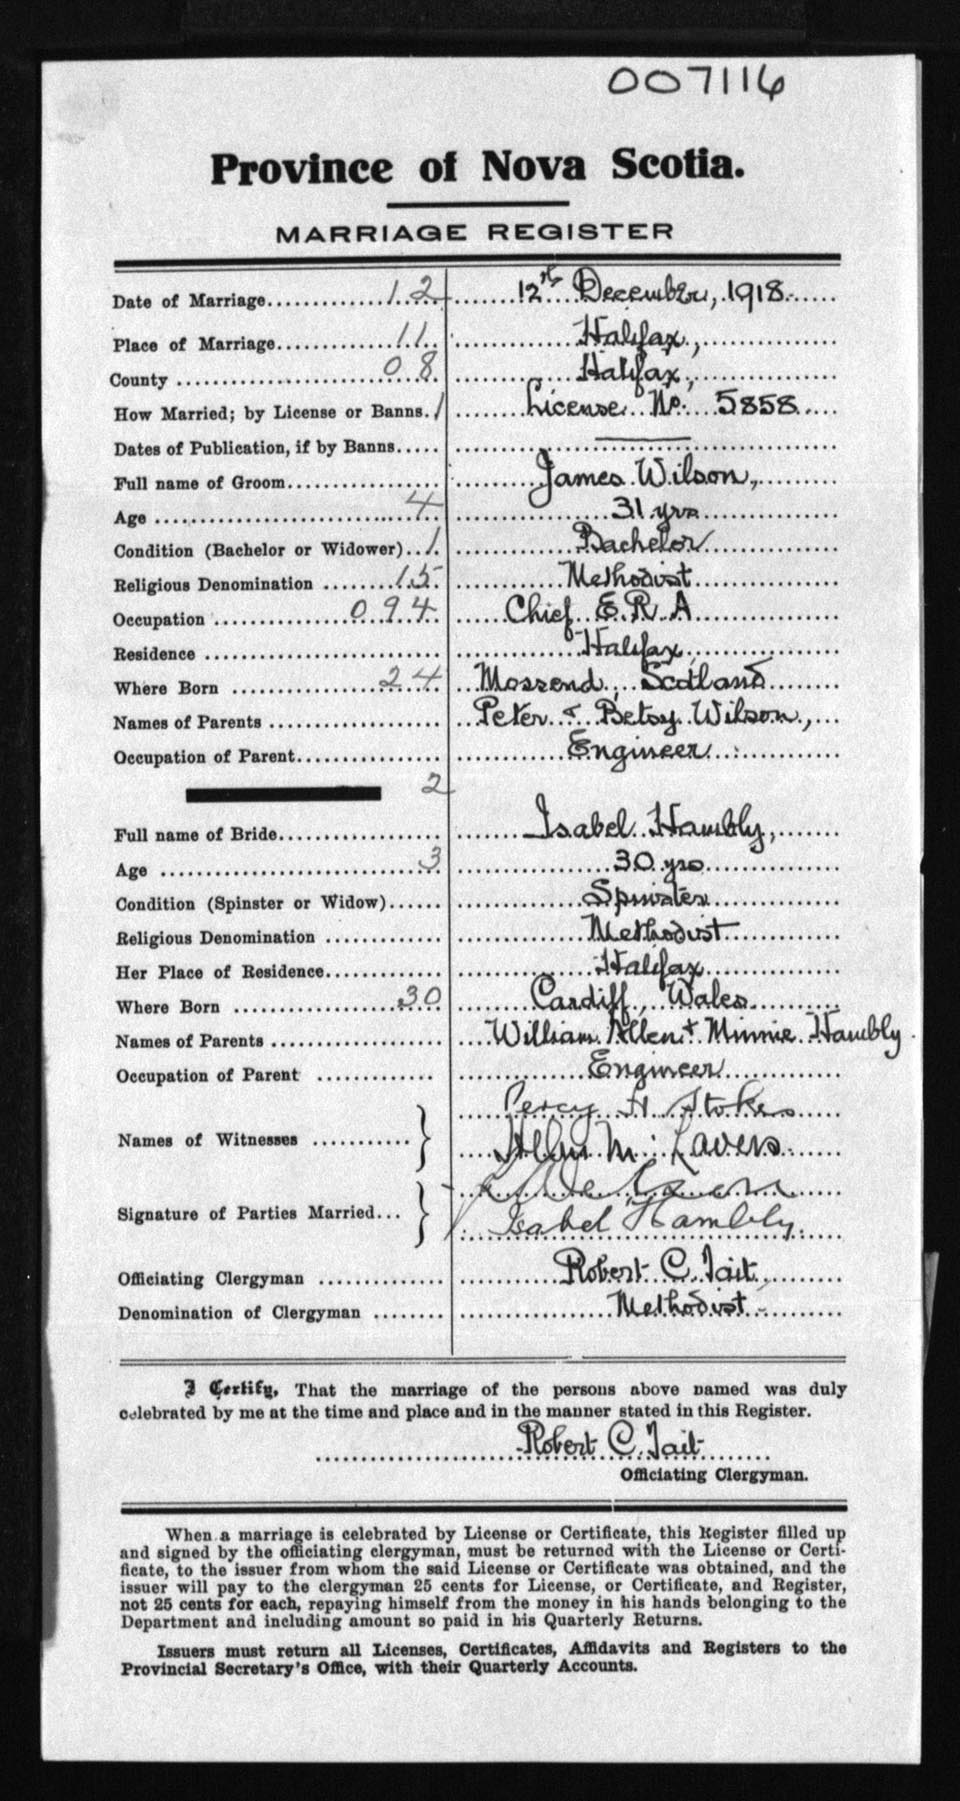 007116
Province of Nova Scotia.
MARRIAGE REGISTER
Date of Marriage 12 12th December, 1918
Place of Marriage 11 Halifax,
County 08 Halifax,
How Married; by License or Banns. 1 License No. 5858
Dates of Publication, if by Banns
Full name of Groom James Wilson,
Age 4 31 yrs
Condition (Bachelor or Widower) 1 Bachelor
Religious Denomination 15 Methodist
Occupation 094 Chief E.R.A
Residence Halifax,
Where Born 24 Mossend, Scotland
Names of Parents Peter & Betsy Wilson,
Occupation of Parent Engineer
2
Full name of Bride Isabel Hambly,
Age 3 30 yrs
Condition (Spinster or Widow) Spinster
Religious Denomination Methodist
Her Place of Residence Halifax
Where Born 30 Cardiff, Wales
Names of Parents William Allen + Minnie Hambly
Occupation of Parent Engineer
Percy H Stokes
Names of Witnesses
M. Lavers
Signature of Parties Married
Isabel Hambly.
Officiating Clergyman Robert C. Tait,
Denomination of Clergyman Methodist
I Certify, That the marriage of the persons above named was duly
celebrated by me at the time and place and in the manner stated in this Register.
Robert C. Tait
Officiating Clergyman.
When a marriage is celebrated by License or Certificate, this Register filled up
and signed by the officiating clergyman, must be returned with the License or Certi-
ficate, to the issuer from whom the said License or Certificate was obtained, and the
issuer will pay to the clergyman 25 cents for License, or Certificate, and Register,
not 25 cents for each, repaying himself from the money in his hands belonging to the
Department and including amount so paid in his Quarterly Returns.
Issuers must return all Licenses, Certificates, Affidavits and Registers to the
Provincial Secretary's Office, with their Quarterly Accounts.